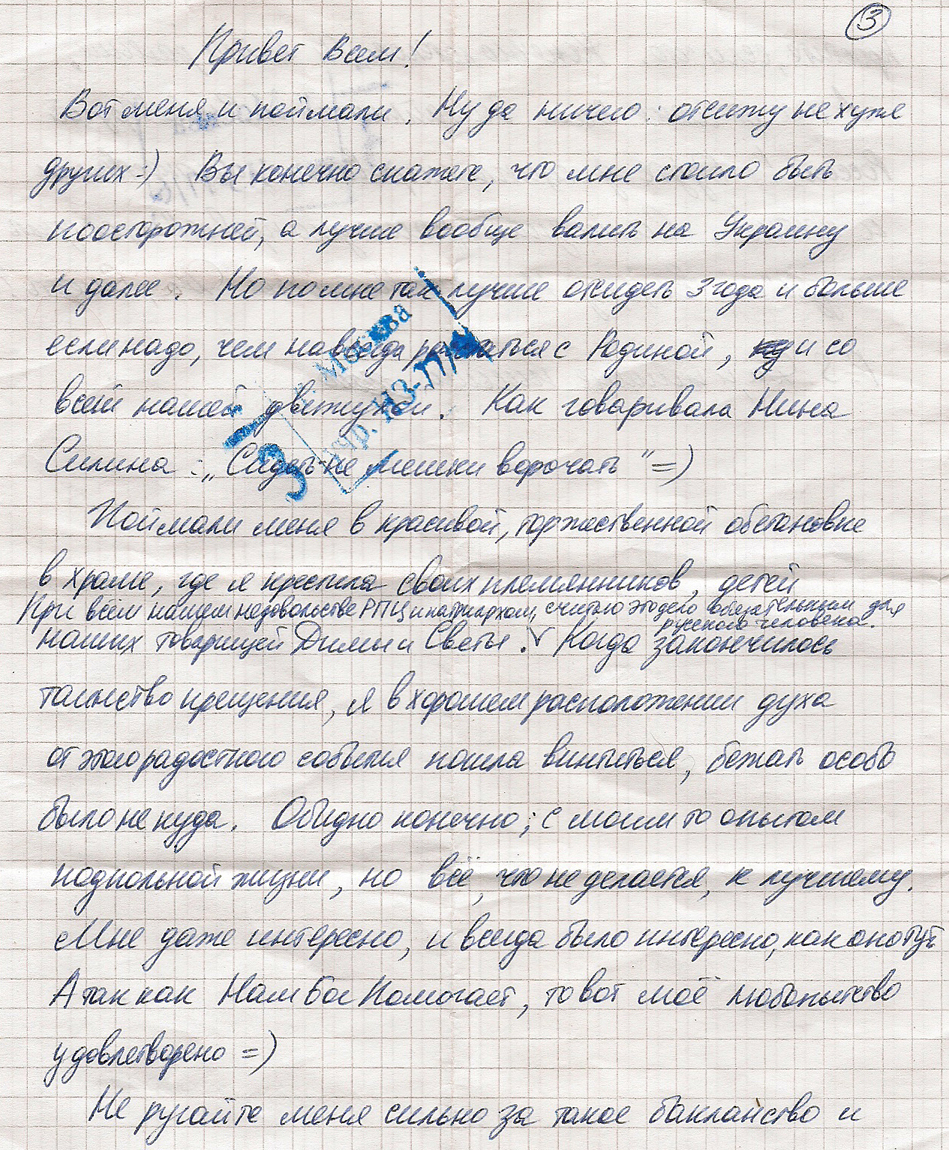 3
Привет Всем!
Вот меня и поймали. Ну да ничего: отсижу не хуже
других :-) Вы конечно скажете, что мне стоило быть
поосторожней, а лучше вообще валить на Украину
и далее. Но по мне так лучше отсидеть 3 года и больше
если надо, чем навсегда расстаться с Родиной, и со
всей нашей движухой. Как говаривала Нина
Силина: „Сидеть-не мешки ворочать" =)
Москва
учр. ИЗ-77/
Поймали меня в красивой, торжественной обстановке
в храме, где я крестила своих племянников, детей
При всём нашем недовольстве РПЦ и патриархом, считаю это дело обязательным для
русского человека.
наших товарищей Димы и Светы. V Когда закончилось
таинство крещения, я в хорошем расположении духа
от этого радостного события пошла винтиться, бежать особо
было не куда. Обидно конечно; с моим то опытом
подпольной жизни, но всё, что не делается, к лучшему.
Мне даже интересно, и всегда было интересно, как оно тут.
А так как Нам Бог Помогает, то вот моё любопытство
удовлетворено =)
Не ругайте меня сильно за такое бакланство и